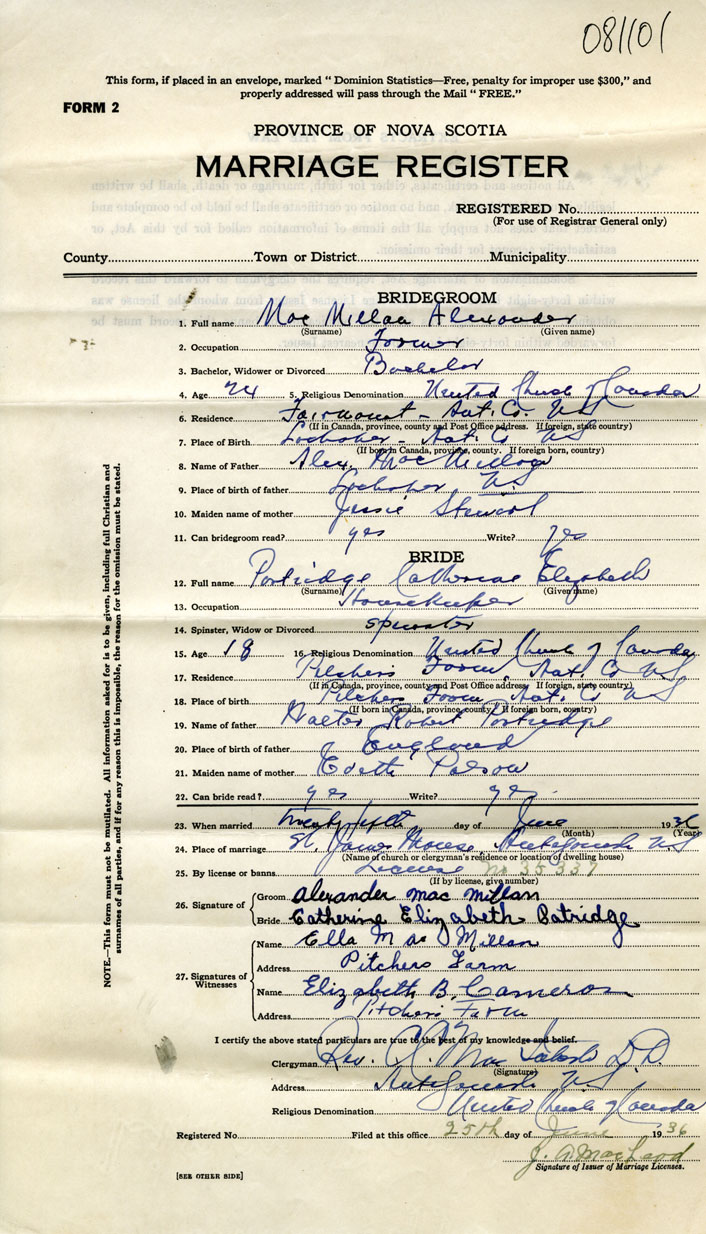 081101
This form, if placed in an envelope, marked “ Dominion Statistics—Free, penalty for improper use $300,” and
properly addressed will pass through the Mail “ FREE.”
FORM 2
PROVINCE OF NOVA SCOTIA
MARRIAGE REGISTER
REGISTERED No.
(For use of Registrar General only)
County Town or District Municipality
BRIDEGROOM
1. Full name Mac Millan Alexander
(Surname) (Given name)
2. Occupation Farmer
3. Bachelor, Widower or Divorced Bachelor
4. Age 24 5. Religious Denomination United Church of Canada
6. Residence Fairmount - Ant. Co. N S
(If in Canada, province, county and Post Office address. If foreign, state country)
7. Place of Birth Lochaber - Ant. Co N S
(If born in Canada, province, county. If foreign born, country)
8. Name of Father Alex. MacMillan
9. Place of birth of father Lochaber N.S
10. Maiden name of mother Jessie Stewart
11. Can bridegroom read? yes Write? Yes
BRIDE
12. Full name Partridge Catherine Elizabeth
(Surname) (Given name)
13. Occupation Housekeeper
14. Spinster, Widow or Divorced spinster
15. Age 18 16. Religious Denomination United Church of Canada
17. Residence Pitchers Farm, Ant. Co N S
(If in Canada, province, county and Post Office address. If foreign, state country)
18. Place of birth Pitchers Farm Ant. Co N S
(If born in Canada, province, county. If foreign born, country)
19. Name of father Walter Robert Partridge
20. Place of birth of father England
21. Maiden name of mother Edith
22. Can bride read? yes Write? yes
23. When married day of June 1936
(Month) (Year)
24. Place of marriage St. James Manse Antigonish N S
(Name of church or clergyman's residence or location of dwelling house)
25. By license or banns License No 35337
(If by license, give number)
26. Signature of Groom Alexander mac millan
Bride Catherine Elizabeth Patridge
27. Signatures of Witnesses Name Ella Mac Millan
Address Pitchers Farm
Name Elizabeth B. Cameron
Address Pitchers Farm
I certify the above stated particulars are true to the best of my knowledge and belief.
Clergyman Rev. D.D.
(Signature)
Address Antigonish N.S.
Religious Denomination United Church of Canada
Registered No. Filed at this office 25th day of June 1936
J. A. MacLeod
Signature of Issuer of Marriage Licenses.
[SEE OTHER SIDE]
NOTE.—This form must not be mutilated. All information asked for is to be given, including full Christian and
surnames of all parties, and if for any reason this is impossible, the reason for the omission must be stated.